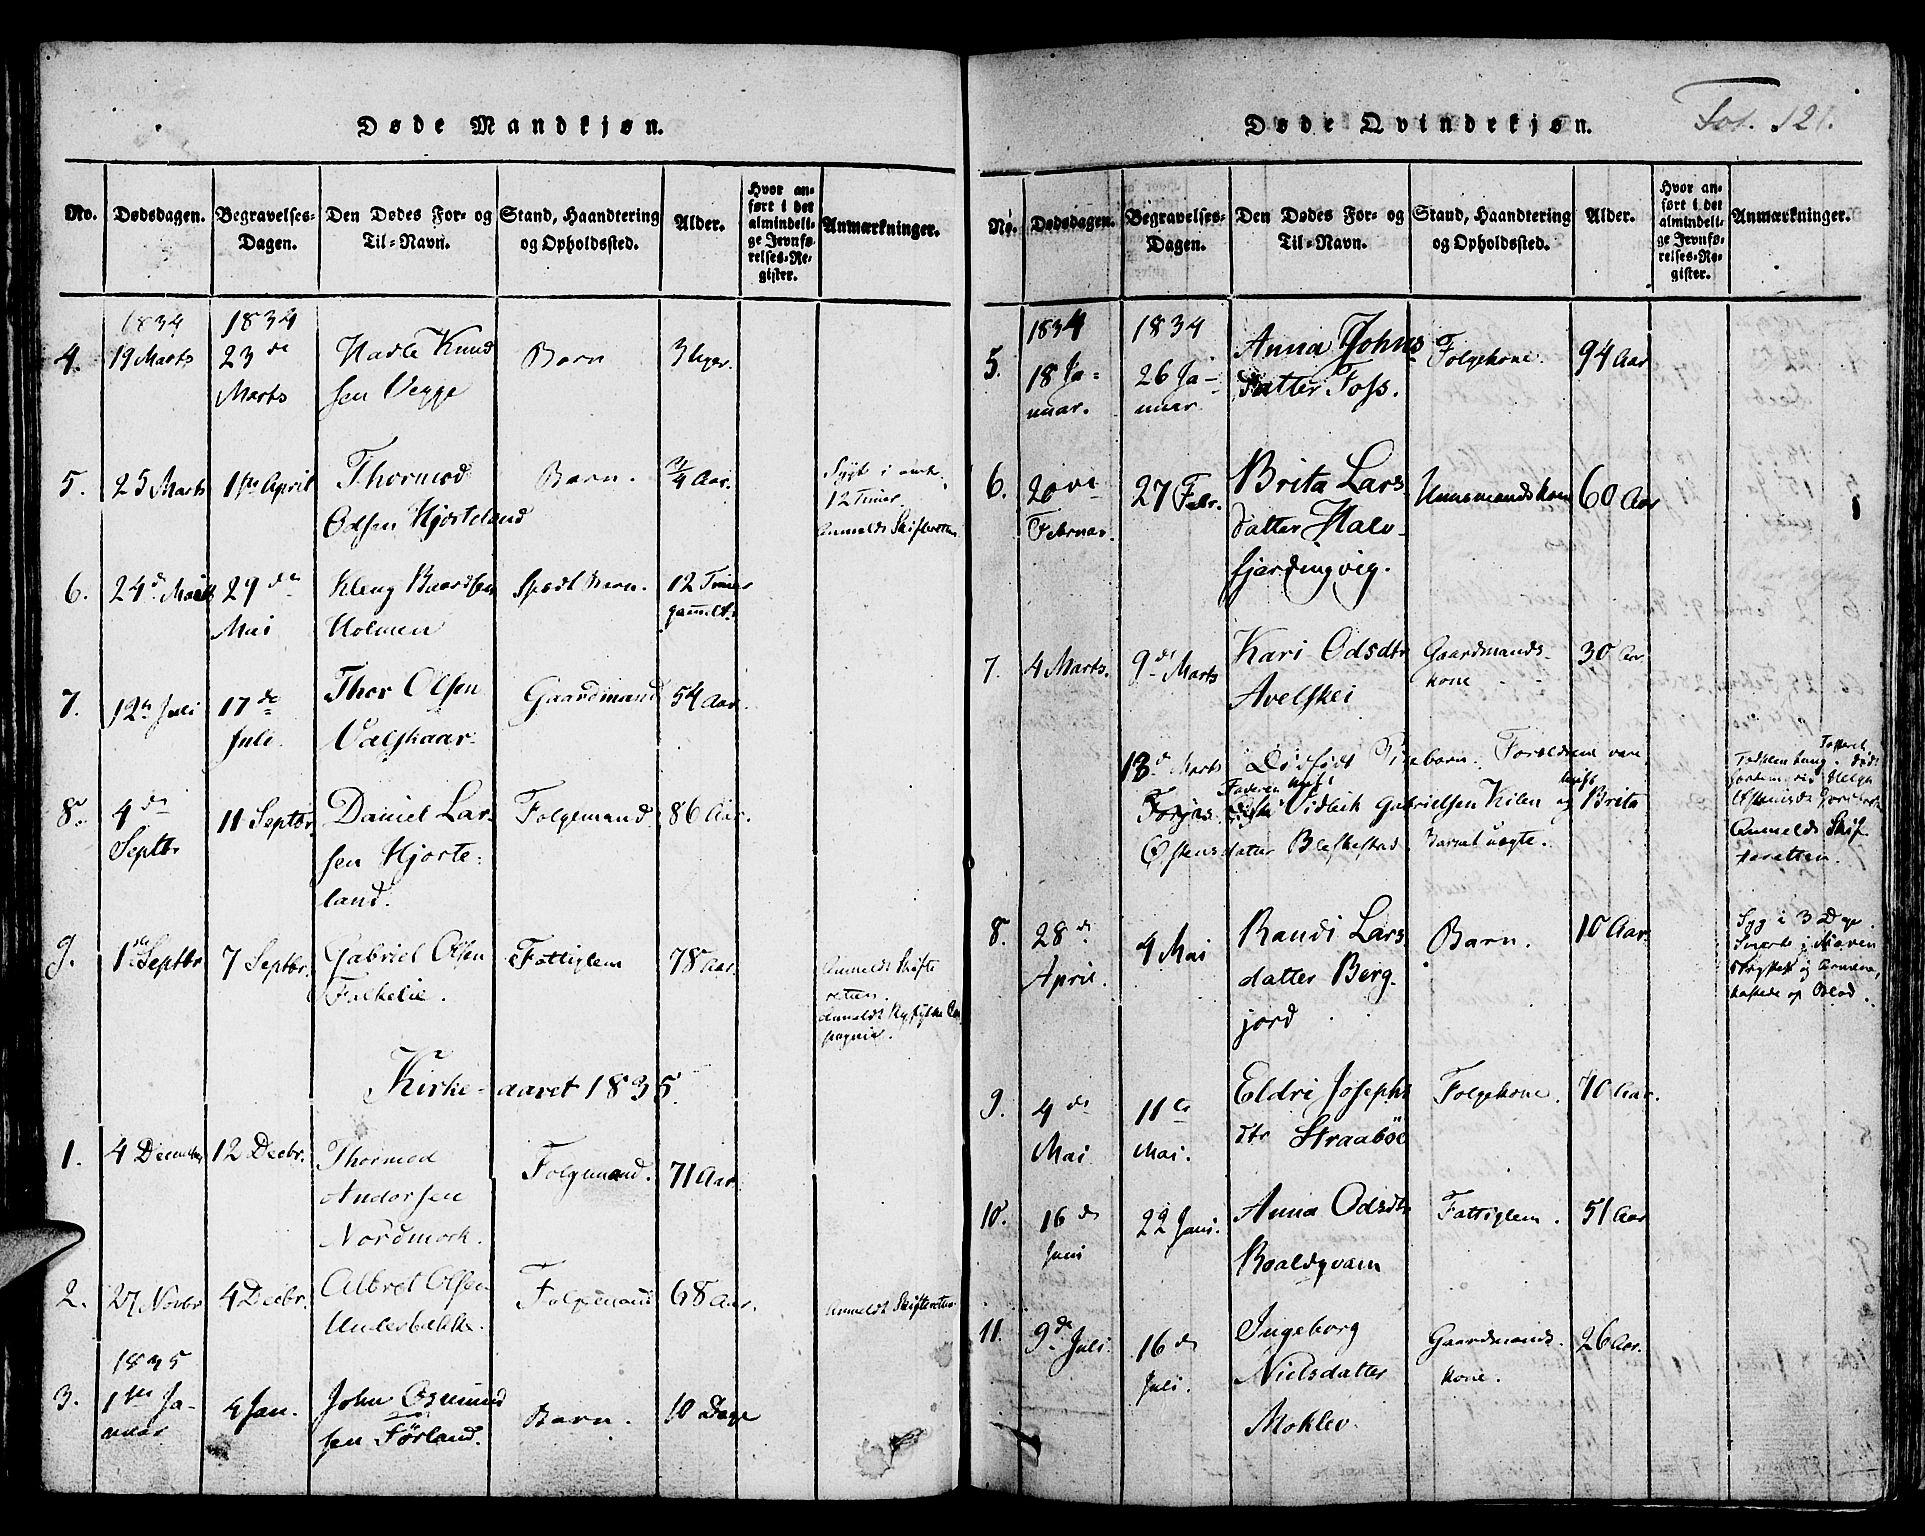 Døde Mandkjøn.
No.
Dødsdagen.
Begravelses-
Dagen.
Den Dødes For- og
Til-Navn.
Stand, Haandtering
og Opholdssted.
Alder.
Hvor an-
ført i det
almindeli-
ge Jevnfø-
relses-Re-
gister.
Anmærkninger.
4.
1834
19 Marts
1834
23 de
Marts
Hadle Knud
sen Vegge
Barn
3 Uger.
5.
25 Marts
1ste April
Thormod
Odsen Hjorteland
Barn.
3/4 Aar.
Sygt i
12 Timer
Anmeldt Skifteretten
6.
24 d. Marts
29 de
Mai
Kleng Baardsen
Holmen
Spædt Barn.
12 Timer
gammelt.
7.
12te Juli
17 de
Juli.
Thor Olsen
Valskaar
Gaardmand
54 Aar.
8.
4 de
Septbr
11 Septbr
Daniel Lar-
sen Hjorte-
land.
Folgemand
86 Aar.
9.
1ste Septbr
7 Septbr.
Gabriel Olsen
Falkelie.
Fattiglem
78 Aar.
Anmeldt Skifte
retten.
Anmeldt Ryfylke
Kirke-aaret 1835.
1.
4 December
12 Decbr.
Thormod
Andersen
Nordmork.
Folgemand.
71 Aar.
2.
27 Novbr
4 Decbr.
Albret Olsen
Underbakke.
Folgemand
68 Aar.
Anmeldt Skifteretten
3.
1835
1ste Ja-
nuar
4 Jan.
John Osmund
sen Førland.
Barn.
10 Dage
Døde Qvindekjøn.
Fol. 121.
No.
Dødsdagen.
Begravelses-
Dagen.
Den Dødes For- og
Til-Navn.
Stand, Haandtering
og Opholdssted.
Alder.
Hvor an-
ført i det
almindeli-
ge Jevnfø-
relses-Re-
gister.
Anmærkninger.
5.
1834
18 Ja-
nuar.
1834
26 Ja-
nuar
Anna Johns
datter Foss.
Folgekone.
94 Aar
6.
20 de
Februar.
27 Febr.
Brita Lars
datter Halv-
fjerdingvig.
Huusmandskone
60 Aar
7.
4 Marts.
9 de Marts
Kari Odsdtr
Avelskei
Gaardmands-
kone
30 Aar
13 de Marts Dødfødt Pigebarn. Forældrene vare
Faderen gift
Vidlich Gabrielsen Kilen og Brita
Østensdatter Bleskestad. Barnet uægte.
Anmeldt Skif-
teretten.
8.
28 de
April.
4 Mai
Randi Lars
datter Berg-
jord
Barn.
10 Aar.
Syg i 3 Dage.
Smerte i Maven
Brystet og Armene,
kastede op Blod.
9.
4 de
Mai
11 te
Mai.
Eldri Josephs
dtr Straabøe
Folgekone.
70 Aar.
10.
16 de
Juni
22 Juni.
Anna Odsdtr
Roaldqvam
Fattiglem.
51 Aar
11.
9 de Juli.
16 de
Juli.
Ingeborg
Nielsdatter
Moklev.
Gaardmands-
kone.
26 Aar.